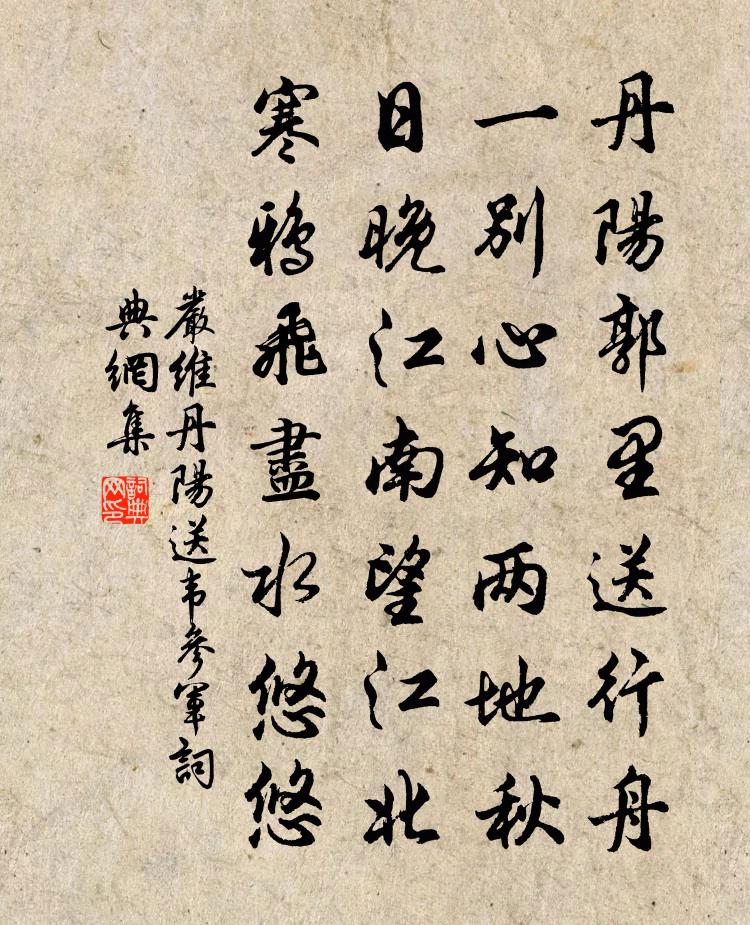 丹陽郭里送行舟
一別心知两地秋
日晚江南望江北
寒鴉飛盡水悠悠
嚴維丹陽送韦參軍詞
典網集
詞典
网印